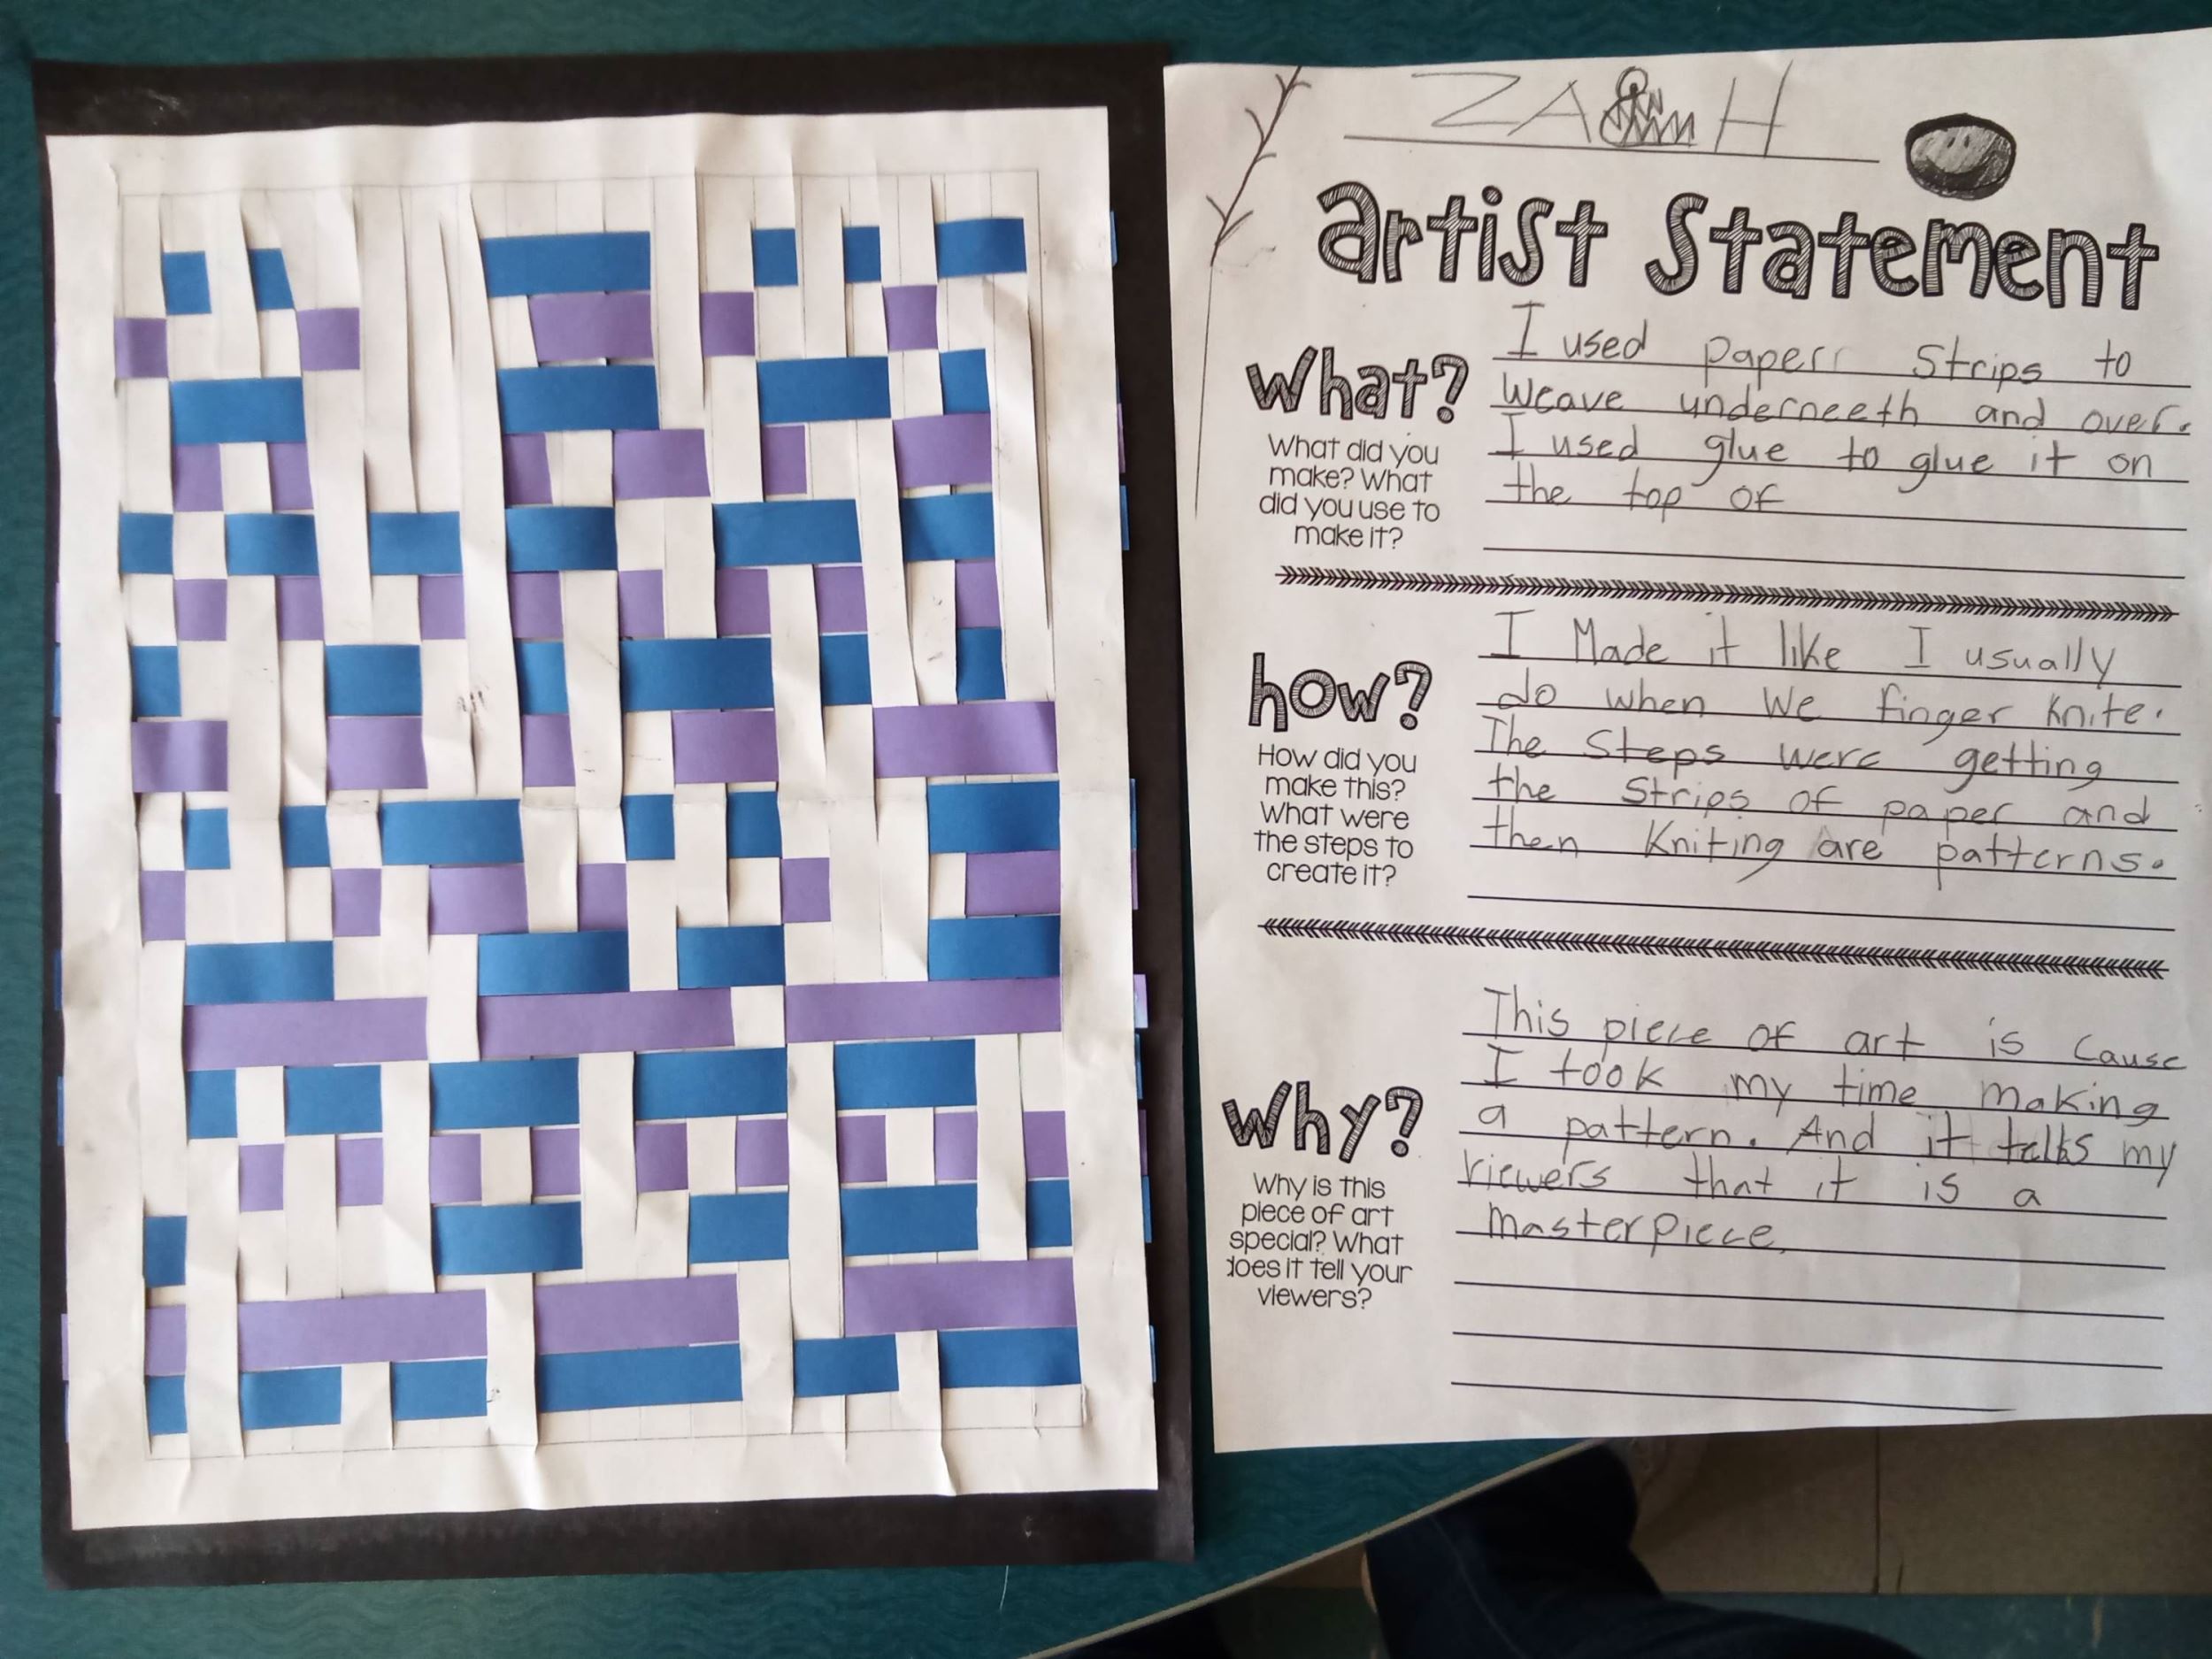 artist Statement
What?
What did you
make? What
did you use to
make it?
I used paperr Strips to
Weave underneeth and over.
I used glue to glue it on
the top of
how?
How did you
make this?
What were
the steps to
create it?
I Made it like I usually
do when We finger knite.
The Steps were getting
the Strips of paper and
then Kniting are patterns.
Why?
Why is this
piece of art
special? What
does it tell your
viewers?
This piece of art is Cause
I took my time making
a pattern. And it talks my
viewers that it is a
Masterpiece.